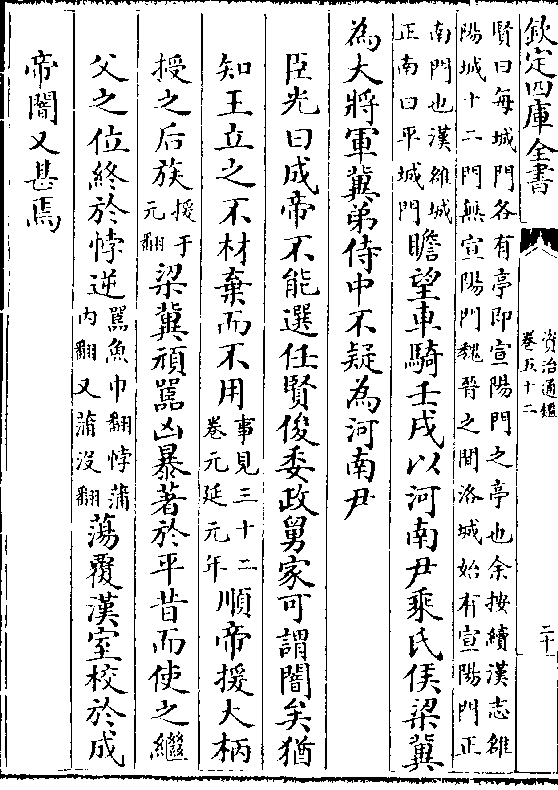 欽定四庫全書
資治通鑑
卷五十二
二十
賢曰每城門各有亭即宣陽門之亭也余按續漢志雒
陽城十二門無宣陽門魏晉之間洛城始有宣陽門正
南門也漢雒城
正南曰平城門
瞻望車騎壬戌以河南尹乘氏侯梁冀
為大將軍冀弟侍中不疑為河南尹
臣光曰成帝不能選任賢俊委政舅家可謂闇矣猶
知王立之不材棄而不用
事見三十二
卷元延元年
順帝援大柄
授之后族
援于
元翻
梁冀頑嚚凶暴著於平昔而使之繼
父之位終於悖逆
嚚魚巾翻悖蒲
内翻又蒲沒翻
蕩覆漢室校於成
帝闇又甚焉